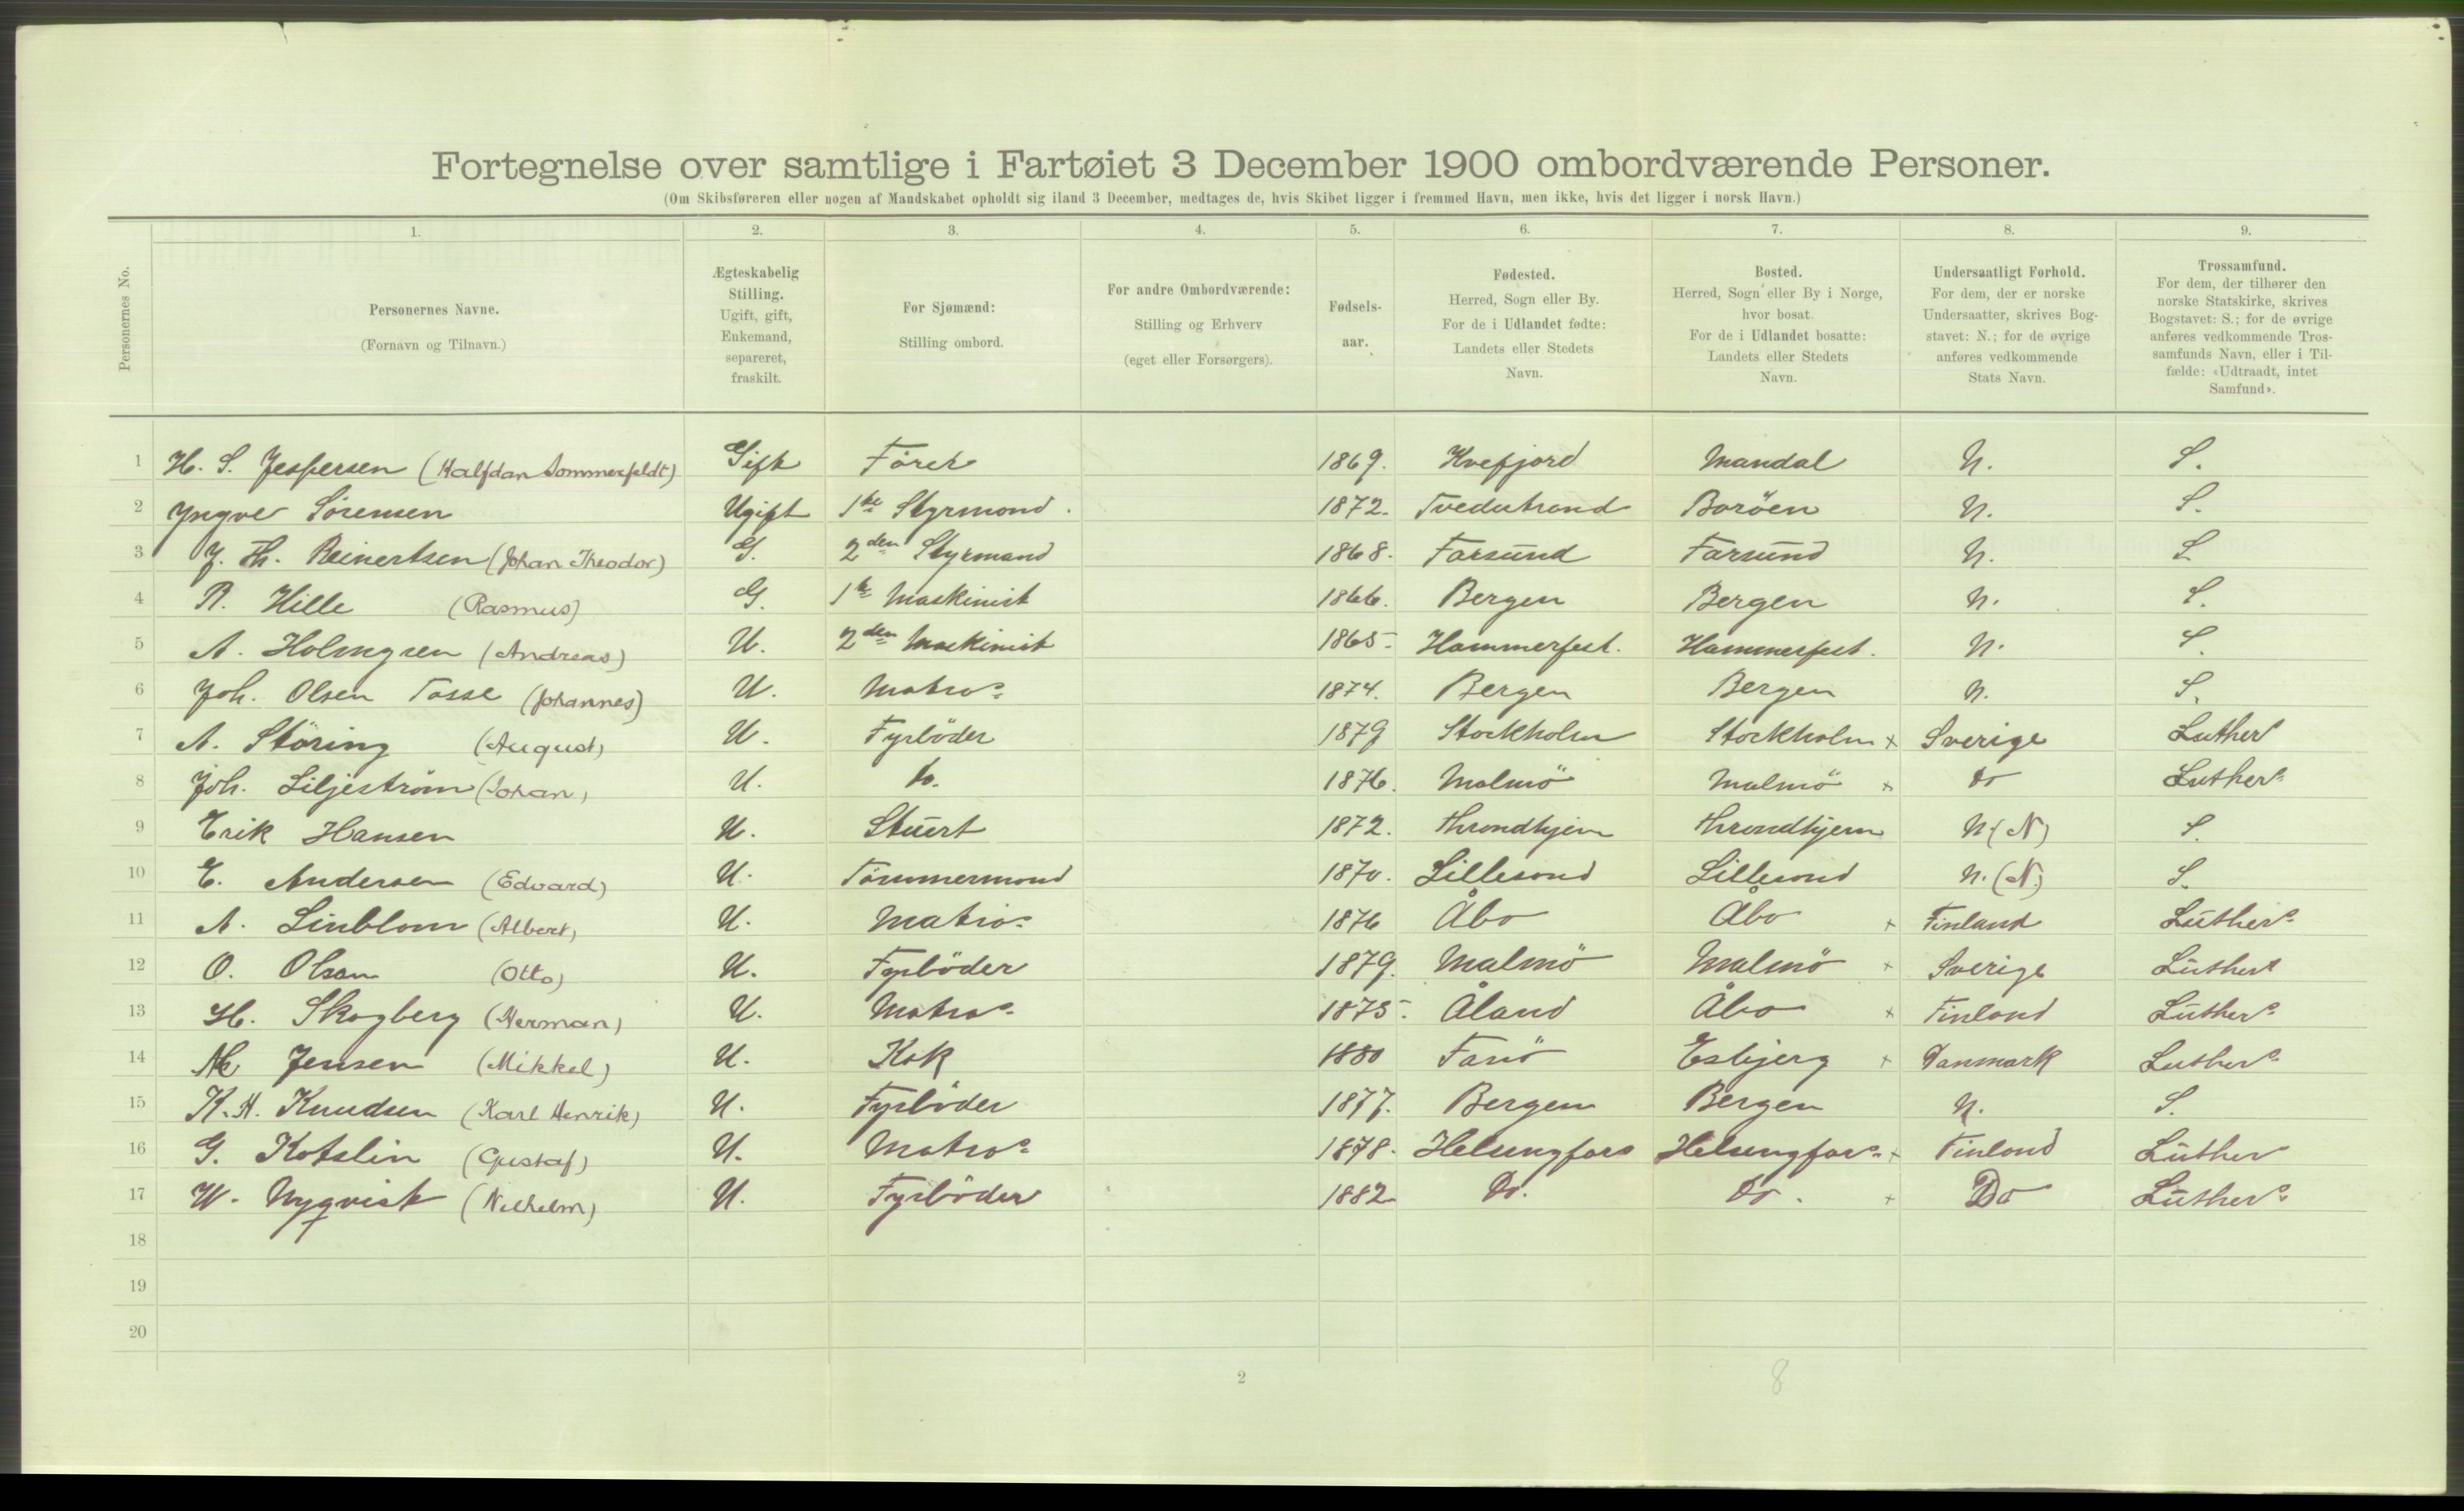 Fortegnelse over samtlige i Fartøiet 3 December 1900 ombordværende Personer.
(Om Skibsføreren eller nogen af Mandskabet opholdt sig iland 3 December, medtages de, hvis Skibet ligger i fremmed Havn, men ikke, hvis det ligger i norsk Havn.)
Personernes No.
1.
Personernes Navne.
(Fornavn og Tilnavn.)
2.
Ægteskabelig
Stilling.
Ugift, gift,
Enkemand,
separeret,
fraskilt.
3.
For Sjømænd:
Stilling ombord.
4.
For andre Ombordværende:
Stilling og Erhverv
(eget eller Forsørgers).
5.
Fødsels-
aar.
6.
Fødested.
Herred, Sogn eller By.
For de i Udlandet fødte:
Landets eller Stedets
Navn.
7.
Bosted.
Herred, Sogn eller By i Norge,
hvor bosat.
For de i Udlandet bosatte:
Landets eller Stedets
Navn.
8.
Undersaatligt Forhold.
For dem, der er norske
Undersaatter, skrives Bog-
stavet: N.; for de øvrige
anføres vedkommende
Stats Navn.
9.
Trossamfund.
For dem, der tilhører den
norske Statskirke, skrives
Bogstavet: S.; for de øvrige
anføres vedkommende Tros-
samfunds Navn, eller i Til-
fælde: «Udtraadt, intet
Samfund».
1 H. S. Jespersen (Halfdan Sommerfeldt) Gift Förer 1869. Kvefjord Mandal N. S.
2 Yngve Sörensen Ugift 1ste Styrmand. 1872. Tvedestrand Boröen N. S.
3 J. Th. Reinertsen (Johan Theodor) G. 2den Styrmand 1868. Farsund Farsund N. S
4 R. Hille (Rasmus) G. 1ste Maskinist 1866. Bergen Bergen N. S.
5 A. Holmgren (Andreas) U. 2den Maskinist 1865. Hammerfest. Hammerfest. N. S.
6 Joh. Olsen Tosse (Johannes) U. Matros 1874. Bergen Bergen N. S.
7 A. Störing (August) U. Fyrböder 1879 Stockholm Stockholm x Sverige Luther
8 Joh. Liljeström (Johan) U. Do. 1876. Malmö Malmö x Do Luthers
9 Erik Hansen U. Stuert 1872. Throndhjem Throndhjem N (N) S.
10 E. Andersen (Edvard) U. Tömmermand 1870. Lillesand Lillesand N. (N.) S.
11 A. Linblom (Albert) U. Matros 1876 Åbo Åbo x Finland Luthers
12 O. Olsan (Otto) U. Fyrböder 1879. Malmö Malmö x Sverige Luthers
13 H. Skogberg (Herman) U. Matros 1875. Åland Åbo x Finland Luthers
14 M Jensen (Mikkel) U. Kok 1880 Fanö Esbjerg x Danmark Luthers
15 K. H. Knudsen (Karl Henrik) U. Fyrböder 1877. Bergen Bergen N. S.
16 G. Kotslin (Gustaf) U. Matros 1878. Helsingfors Helsingfors x Finland Luther
17 W. Nyqvist (Vilhelm) U. Fyrböder 1882 Do. Do. x Do Luthers
18
19
20
2
8